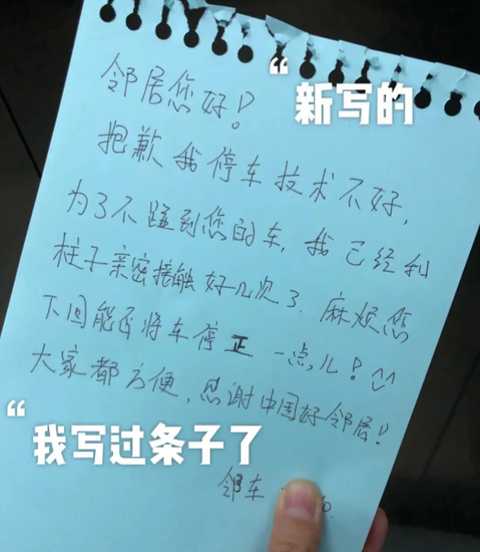 邻居您好!
“新写的
抱歉我停车技术不好,
为了不蹭到您的车,我已经和
柱子亲密接触好几次了.麻烦您
下回能否将车停正一点儿!
大家都方便,感谢中国好邻居!
“我写过条子了
邻车